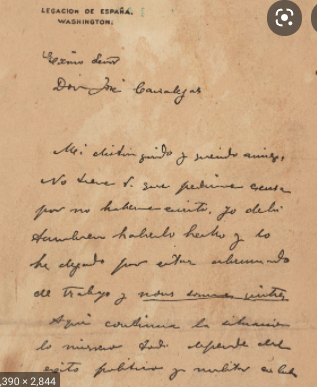 LEGACION DE ESPAÑA.
WASHINGTON.
Excmo Señor
Don José Canalejas
Mi distinguido y querido amigo:
No tiene V. que pedirme excusa
por no haberme escrito, yo debí
también haberlo hecho y lo
he dejado por estar abrumado
de trabajo y
Aquí continua la situacion
lo mismo todo depende del
exito politico y militar en Cuba
,390 × 2,844